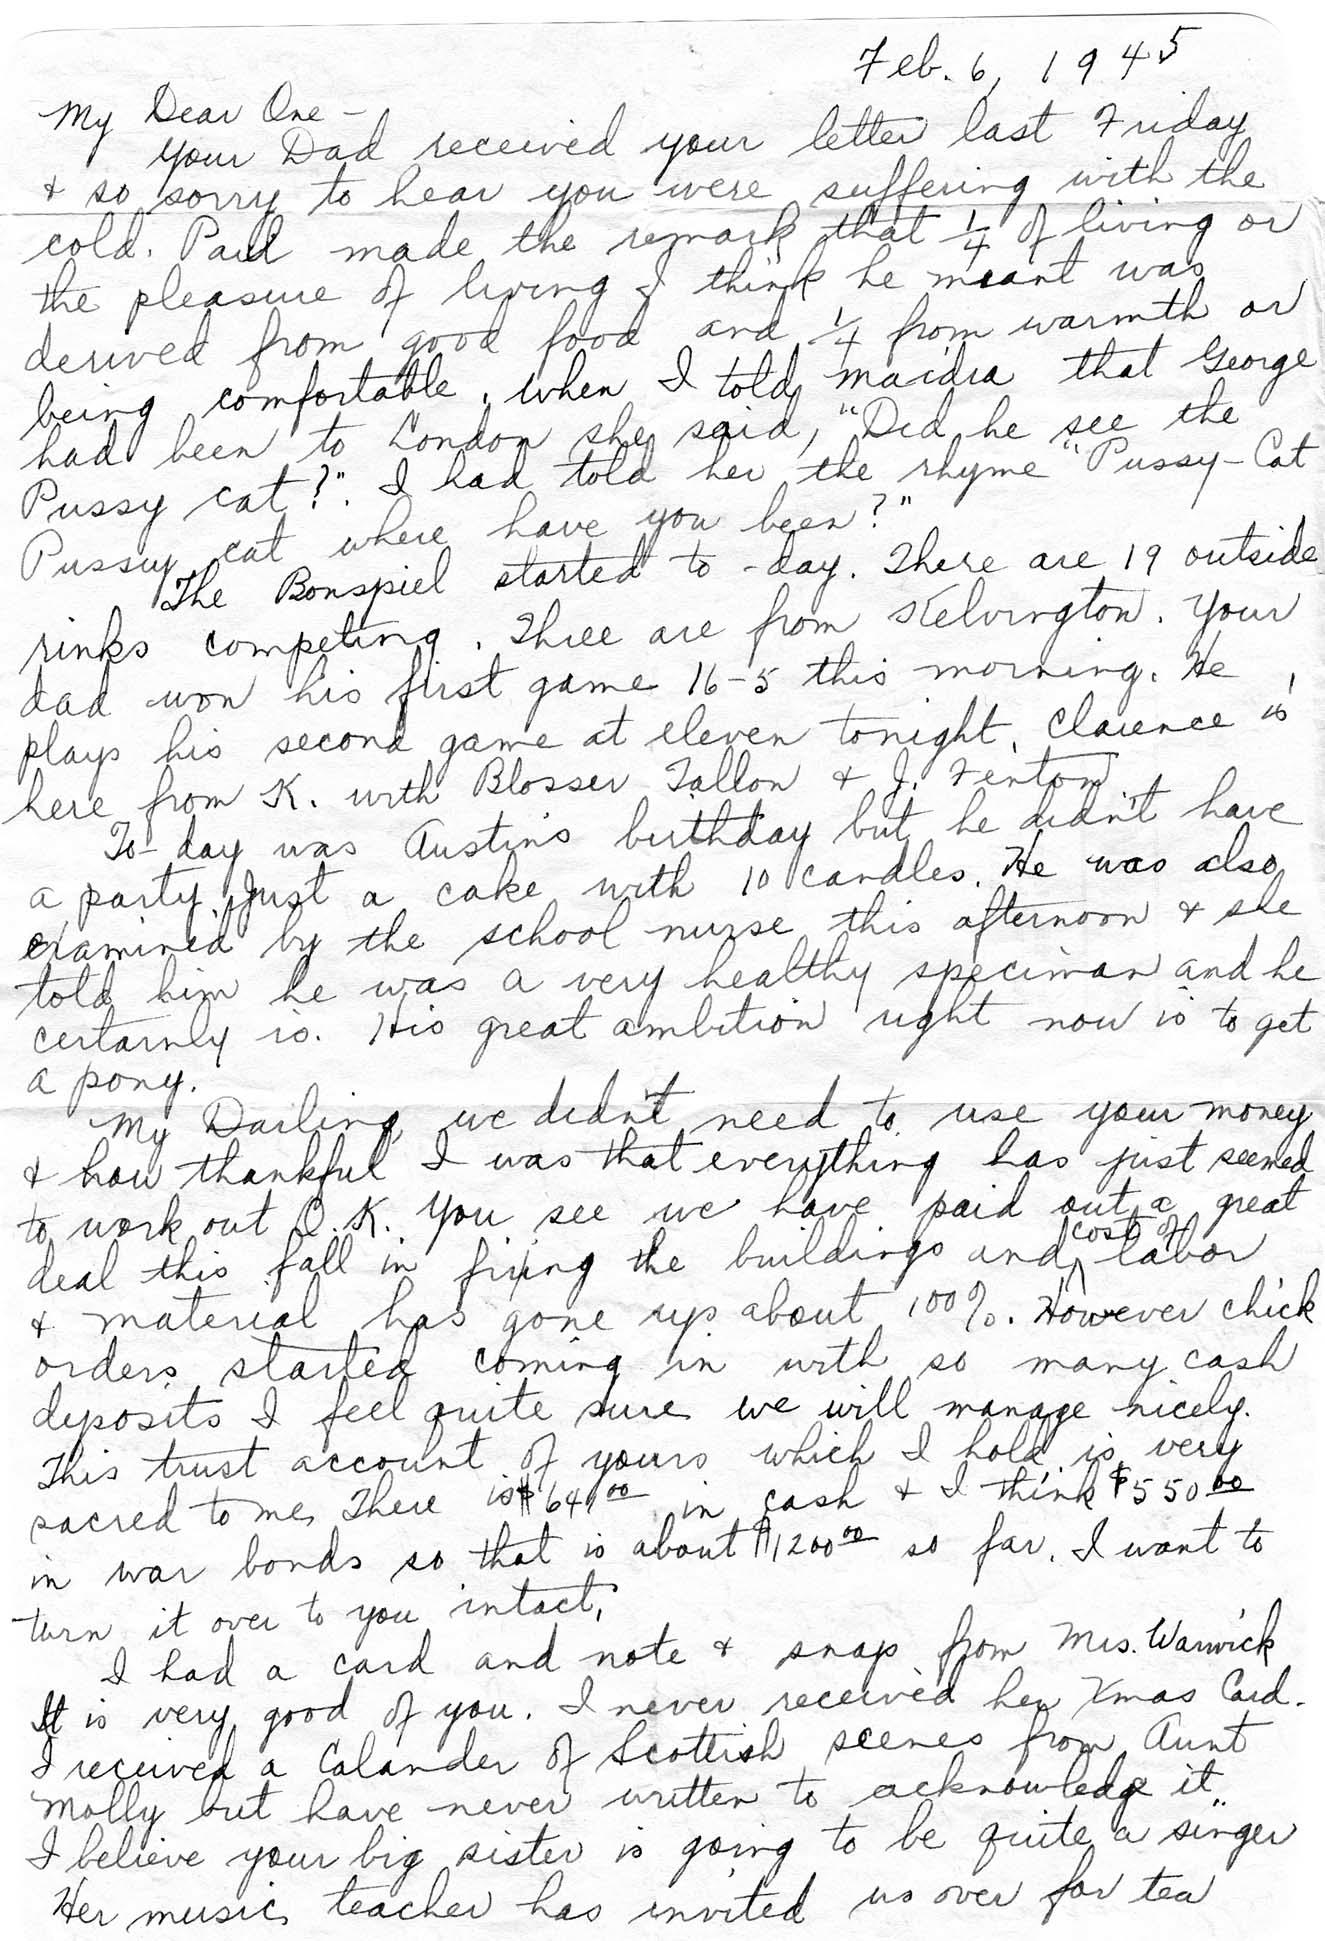 Feb. 6, 1945
My Dear One -
Your Dad received your letter last Friday
& so sorry to hear you were suffering with the
cold. Paul made the remark that 1/4 of living or
the pleasure of living I think he meant was
derived from good food and 1/4 from warmth or
being comfortable. When I told Maidra that George
had been to London she said, "Did he see the
Pussy cat?". I had told her the rhyme "Pussy-Cat
Pussy cat where have you been?"
The Bonspiel started to-day. There are 19 outside
rinks competing. Three are from Kelvington. Your
dad won his first game 16-5 this morning. He
plays his second game at eleven tonight. Clarence is
here from K. with Blosser Tallon & J. Fenton
To-day was Austin's birthday but he didn't have
a party. Just a cake with 10 candles. He was also
examined by the school nurse this afternoon & she
told him he was a very healthy speciman and he
certainly is. His great ambition right now is to get
a pony.
My Darling, we didn't need to use your money
& how thankful I was that everything has just seemed
to work out O.K. You see we have paid out a great
deal this fall in fixing the buildings and cost of labor
& material has gone up about 100%. However chick
orders started coming in with so many cash
deposits I feel quite sure we will manage nicely.
This trust account of yours which I hold is very
sacred to me. There is in cash & I think $550.00
in war bonds so that is about $1200.00 so far. I want to
turn it over to you intact.
I had a card and note & snap from Mrs. Warwick
It is very good of you. I never received her Xmas Card.
I received a Calander of Scottish scenes from Aunt
Molly but have never written to acknowledge it.
I believe your big sister is going to be quite a "singer"
Her music teacher has invited us over for tea